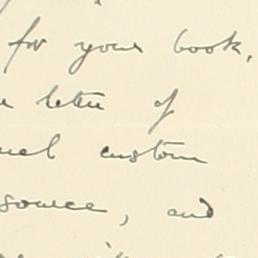 for your book,
letter of
custom
source, and